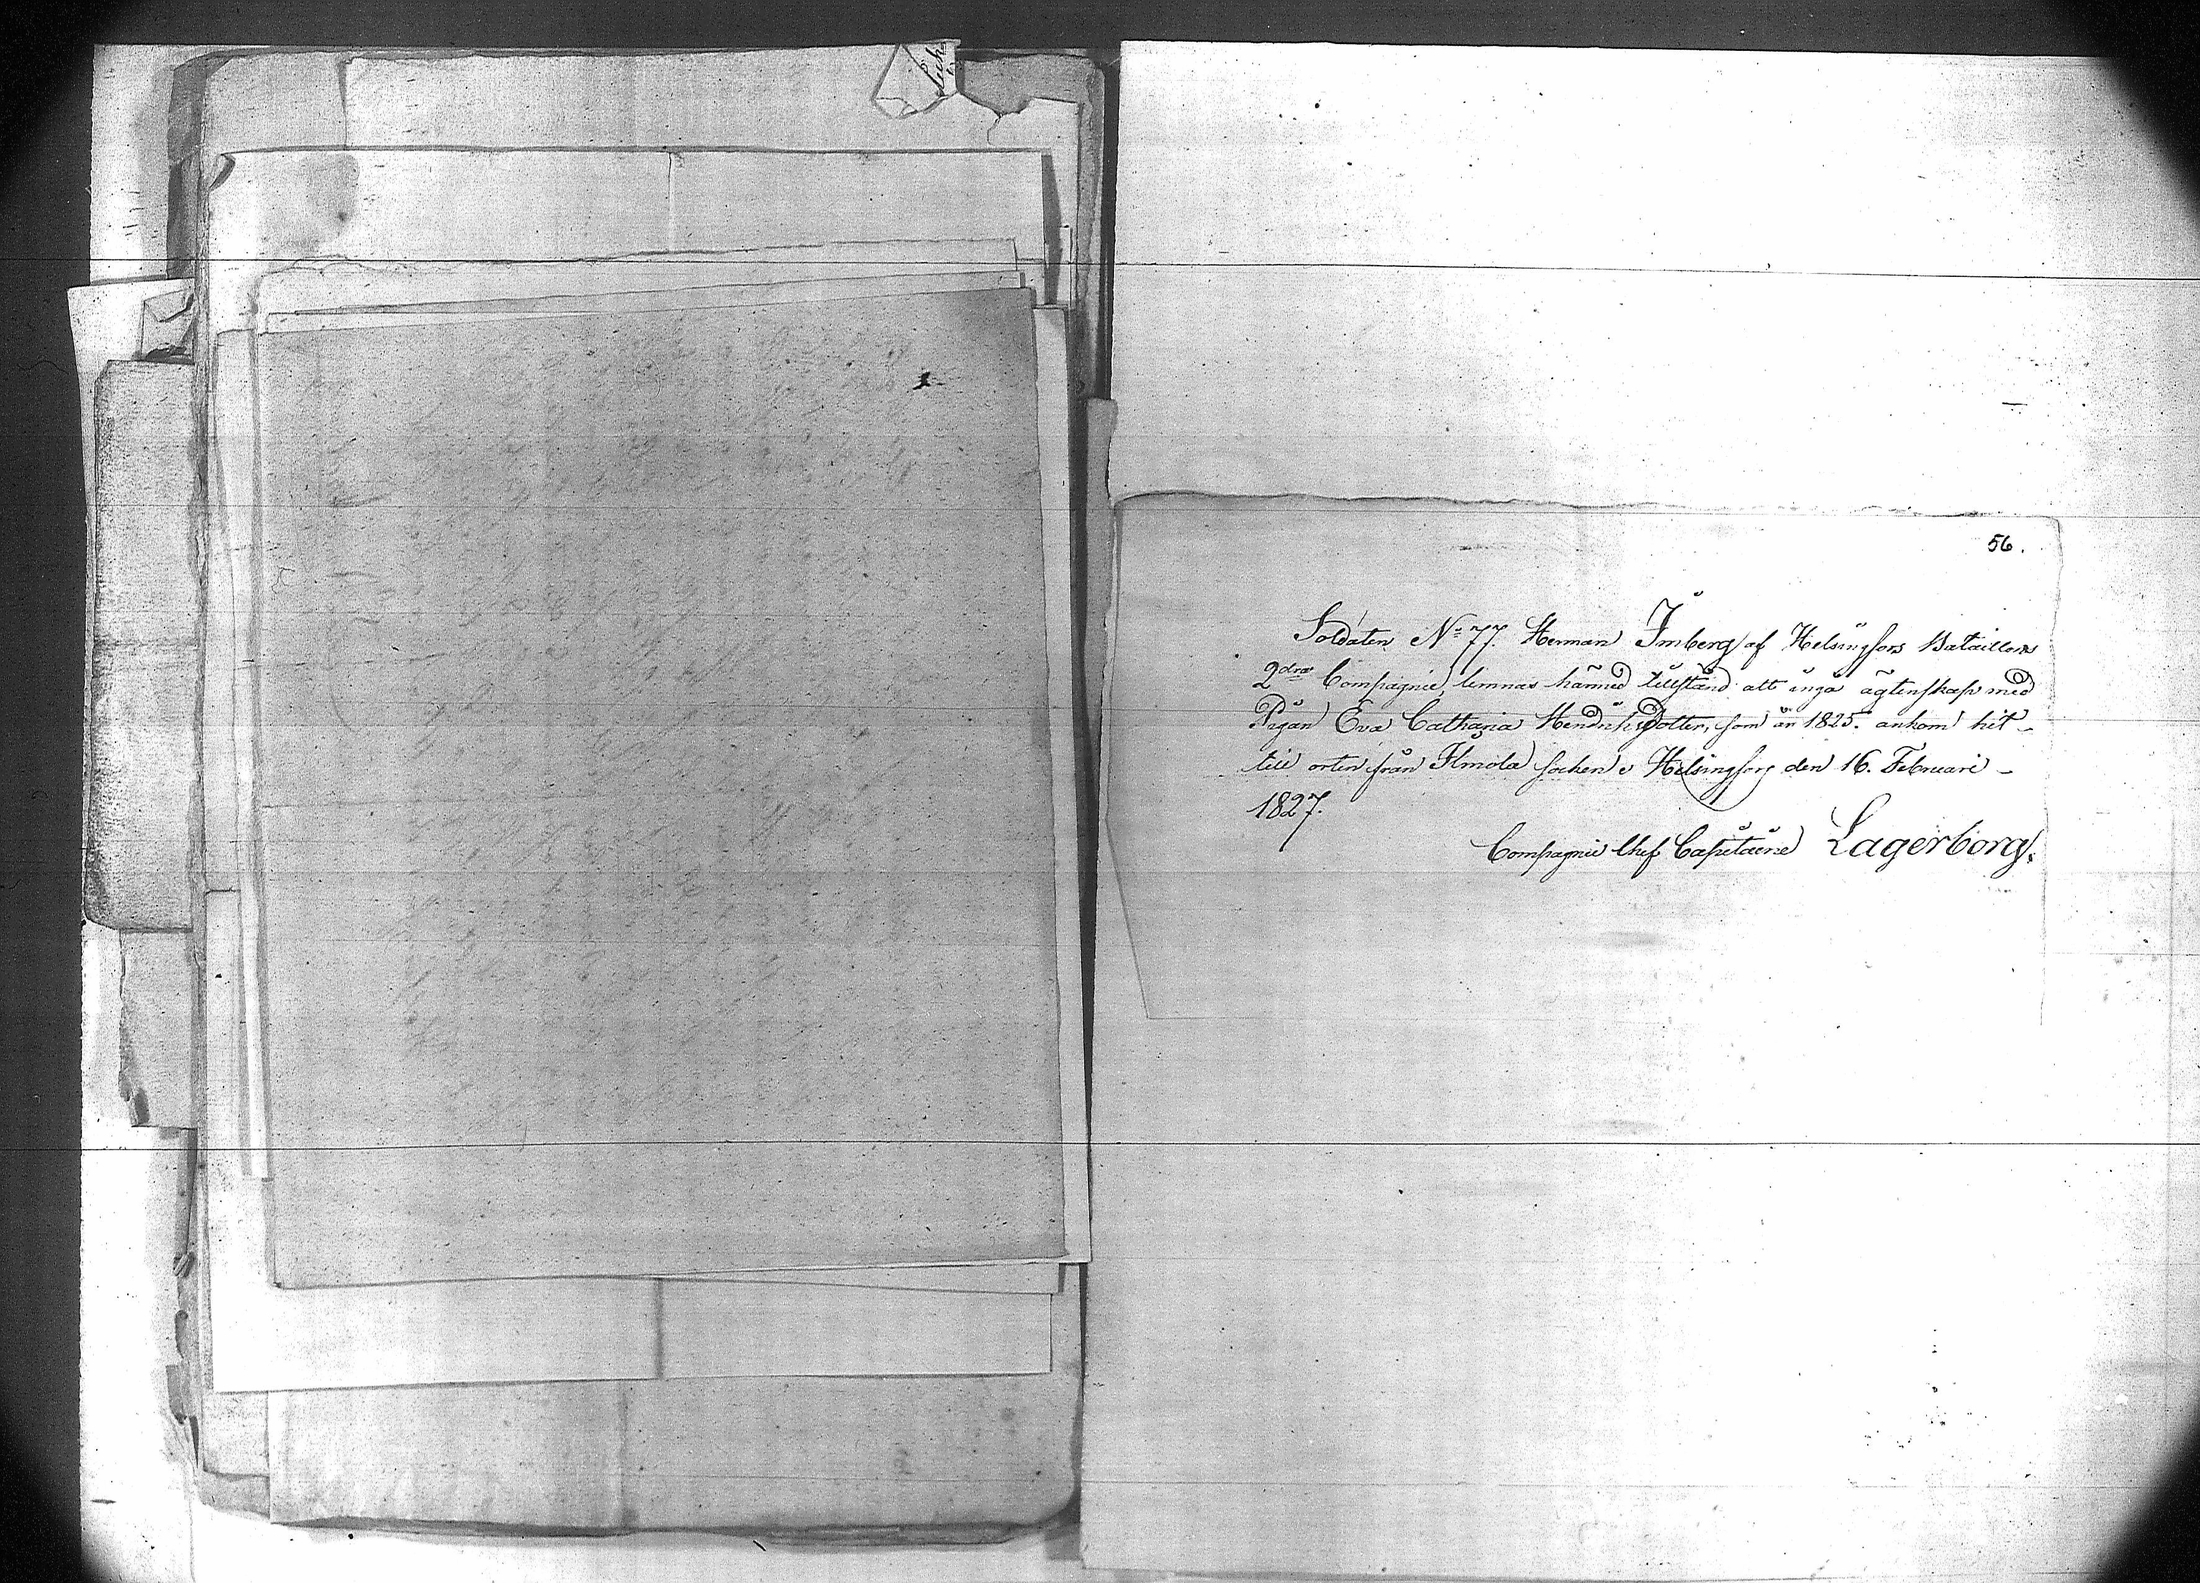 56.
Soldaten No 77. Herman Imberg af Helsingfors Bataillons
2dra Compagnie, lemnas härmed tillstånd att ingå ägtenskap med
Pigan Eva Catharia Hendrichsdotter, som år 1825. ankom hit-
till orten från Ilmola socken. Helsingfors den 16. Februari -
1827.
Compagnie Chef Capitaine Lagerborg.